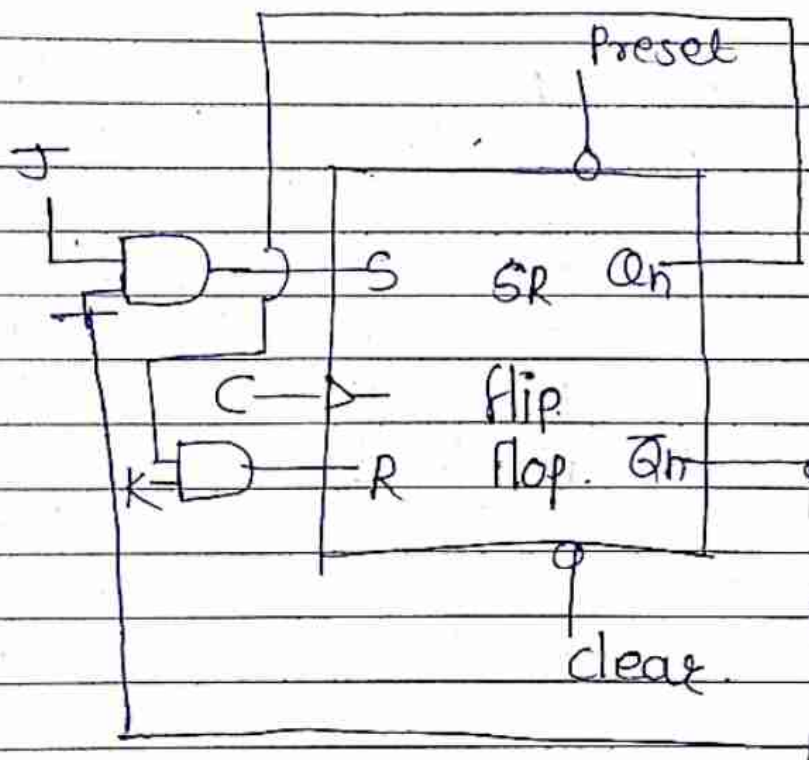 Preset
J
S SR Qn
C flip
K R flop. Q̅n
clear.